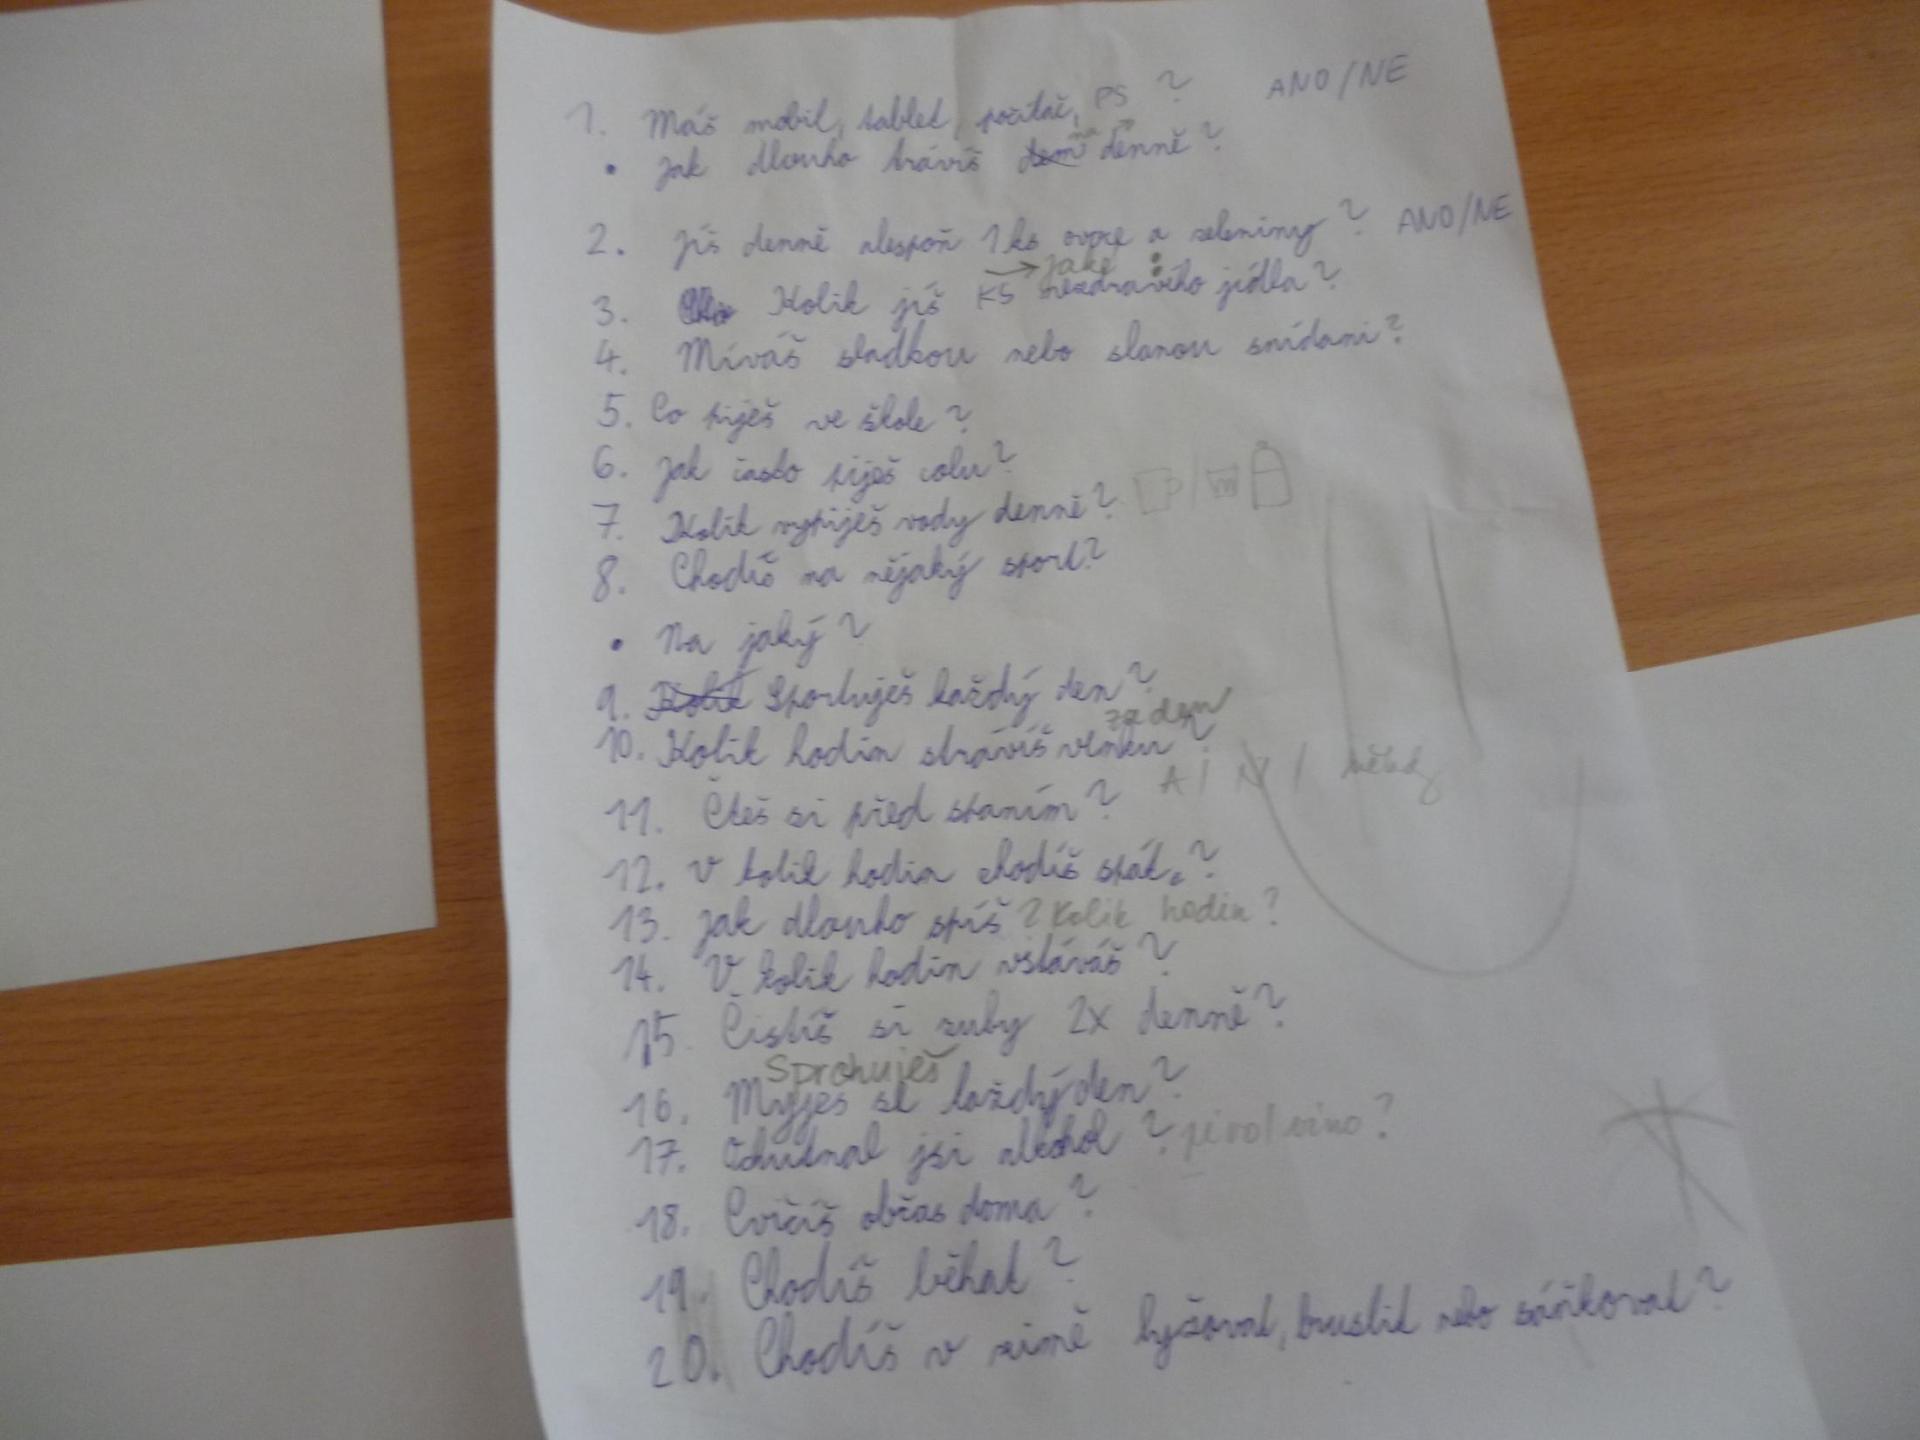 1. Máš mobil, tablet, počítač, PS ? ANO/NE
• Jak dlouho trávíš na denně?
2. Jíš denně alespoň 1 ks ovoce a zeleniny? ANO/NE
→ jaké :
3. Kolik jíš KS nezdravého jídla?
4. Míváš sladkou nebo slanou snídani?
5. Co piješ ve škole?
6. Jak často piješ colu?
7. Kolik vypiješ vody denně?
8. Chodíš na nějaký sport?
• Na jaký?
9. Kolik Sportuješ každý den?
za den
10. Kolik hodin strávíš venku?
A / N / někdy
11. Čteš si před spaním?
12. V kolik hodin chodíš spát.?
13. Jak dlouho spíš? Kolik hodin?
14. V kolik hodin vstáváš?
15. Čistíš si zuby 2x denně?
Sprchuješ
16. Myješ se každý den?
17. Ochutnal jsi alkohol? pivo/víno?
18. Cvičíš občas doma?
19. Chodíš běhat?
20. Chodíš v zimě lyžovat, bruslit nebo sáňkovat?